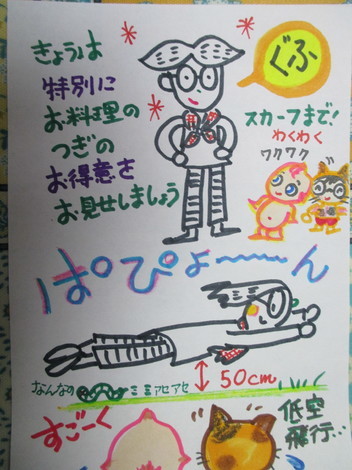 きょうは
特別に
お料理の
つぎの
お得意を
お見せしましょう
ぐふ
スカーフまで!
わくわく
ワクワク
ぱぴょ〜〜ん
なんなの
ミミアセアセ
50cm
すごーく
低空
飛行…